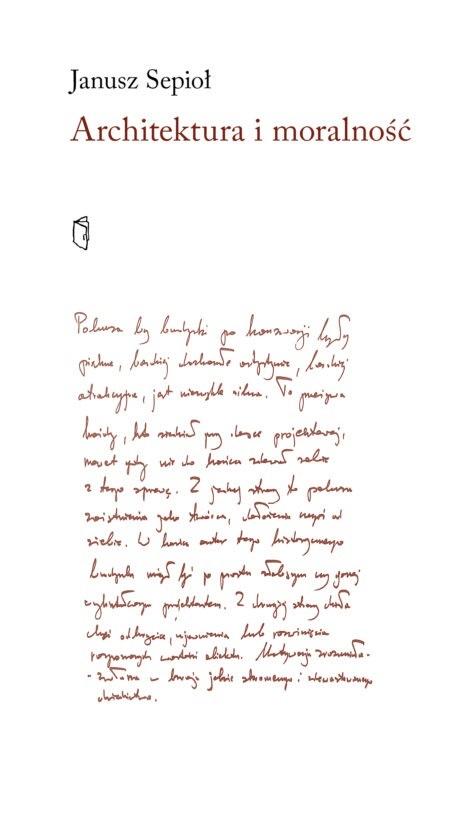 Janusz Sepioł
Architektura i moralność
Pokusa by budynki po konserwacji były
piękne, bardziej doskonałe artystycznie, bardziej
atrakcyjne, jest niezwykle silna. To przeżywa
każdy, kto siedział przy desce projektowej,
nawet gdy nie do końca zdawał sobie
z tego sprawę. Z jednej strony to pokusa
zaistnienia jako twórca, dodania czegoś od
siebie. W końcu autor tego historycznego
budynku mógł być po prostu słabszym czy gorzej
wykształconym projektantem. Z drugiej strony
chęć odkrycia, ujawnienia lub rozwinięcia
wartości obiektu. Motywacja zrozumiała